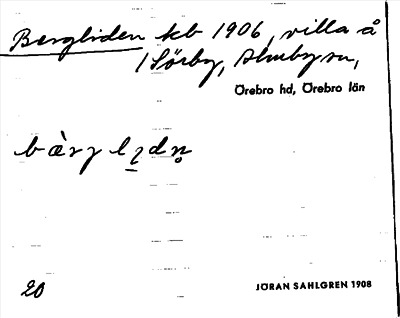 Bergliden kb 1906, villa å
1 Sörby, Almby sn,
Örebro hd, Örebro län
bær̀ȝ lıdn̥
20
JÖRAN SAHLGREN 1908